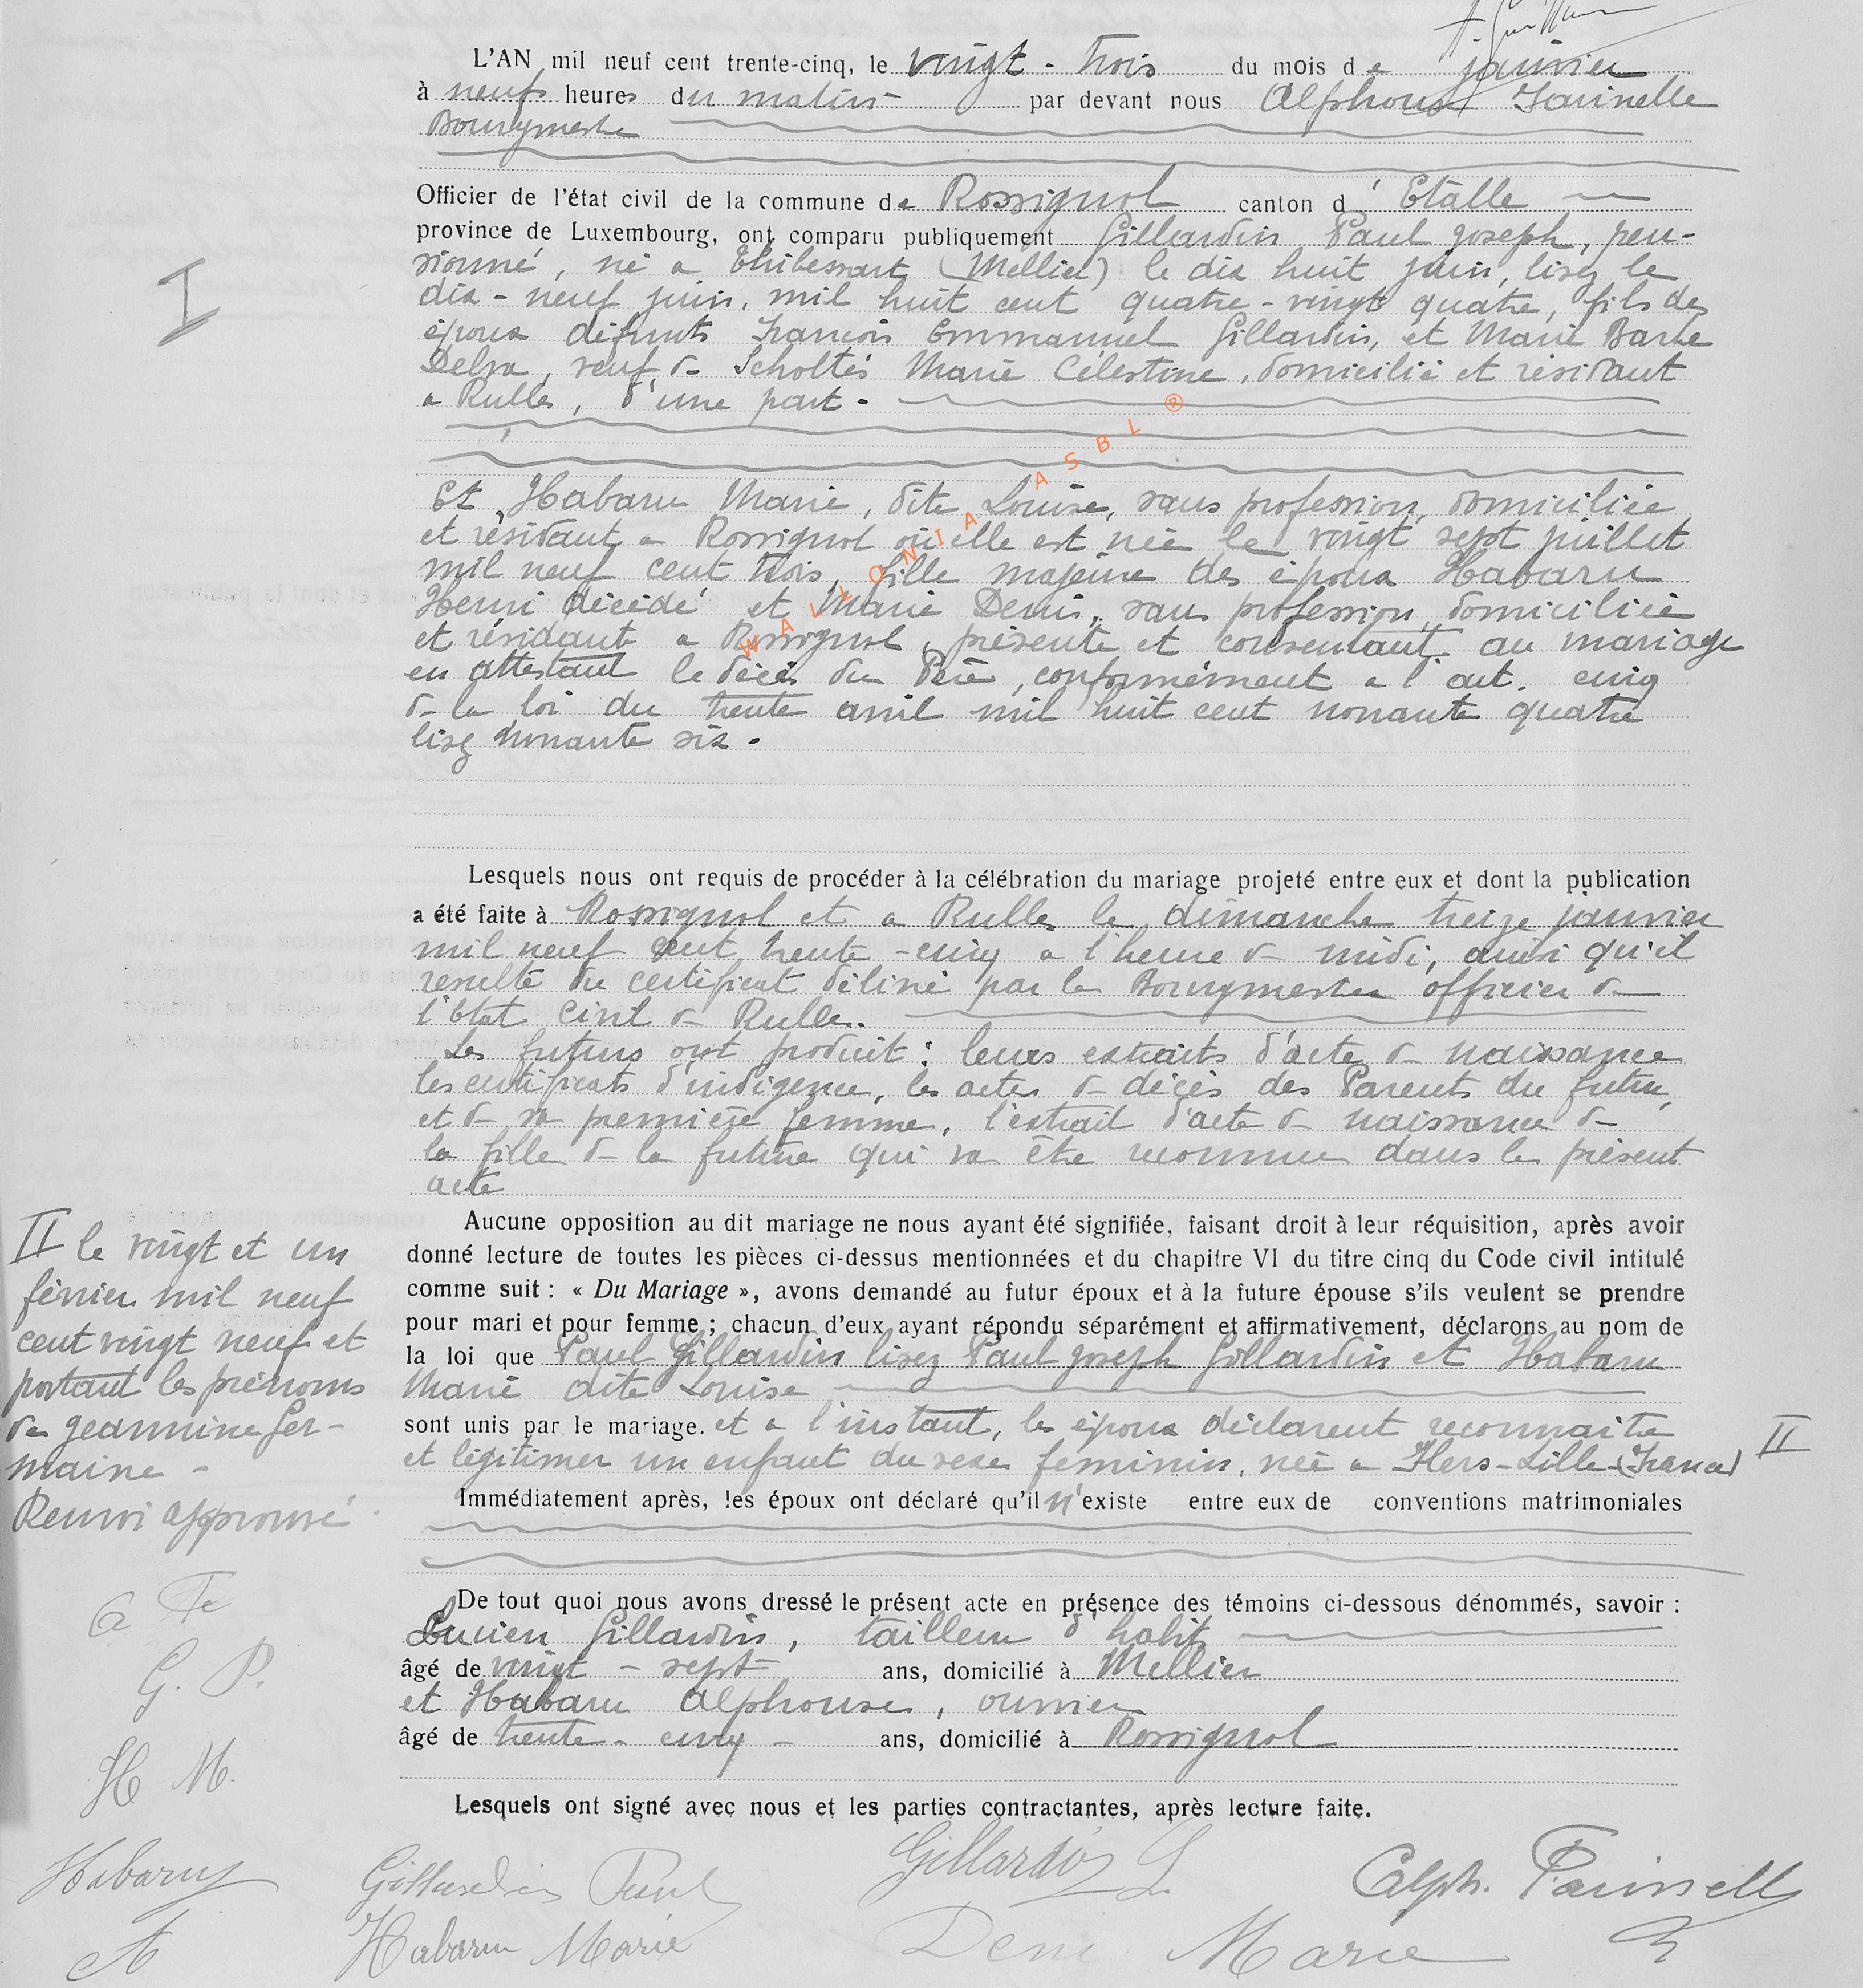 L'AN mil neuf cent trente-cinq, le vingt-trois du mois de janvier
à neuf heures du matin par devant nous Alphonse
Bourgmestre
Officier de l'état civil de la commune de Rossignol canton d'Etalle
province de Luxembourg, ont comparu publiquement Gillardin Paul Joseph, pen-
sionné, né a Thibessart (Mellier) le dix huit juin, lisez le
dix-neuf juin, mil huit cent quatre-vingt quatre, fils des
époux défunts François Emmanuel Gillardin, et Marie Barbe
veuf de Scholtès Marie Célestine, domicilié et résidant
a Rulles, d'une part.
I
Et Habaru Marie, dite Louise, sans profession, domiciliée
et résidant a Rossignol où elle est née le vingt sept juillet
mil neuf cent trois, fille majeure des époux Habaru
Henri décédé et Marie Denis, sans profession, domiciliée
et résidant a Rossignol, présente et consentant au mariage
en attestant le décès du Père, conformément a l'art. cinq
de la loi du trente avril mil huit cent nonante quatre
lisez nonante six.
WALLONIA ASBL ®
Lesquels nous ont requis de procéder à la célébration du mariage projeté entre eux et dont la publication
a été faite à Rossignol et a Rulles le dimanche treize janvier
mil neuf cent trente-cinq a l'heure de midi, ainsi qu'il
resulte du certificat délivré par le Bourgmestre officier de
l'état civil de Rulles.
Les futurs ont produit : leurs extraits d'acte de naissance
les certificats d'indigence, les actes de décès des Parents du futur,
et de sa première femme, l'extrait d'acte de naissance de
la fille de la future qui va être reconnue dans le présent
acte
Aucune opposition au dit mariage ne nous ayant été signifiée, faisant droit à leur réquisition, après avoir
donné lecture de toutes les pièces ci-dessus mentionnées et du chapitre VI du titre cinq du Code civil intitulé
comme suit : « Du Mariage », avons demandé au futur époux et à la future épouse s'ils veulent se prendre
pour mari et pour femme ; chacun d'eux ayant répondu séparément et affirmativement, déclarons au nom de
la loi que Paul Gillardin lisez Paul Joseph Gillardin et Habaru
Marie dite Louise
sont unis par le mariage. et a l'instant, les époux déclarent reconnaitre
et légitimer un enfant du sexe feminin, née a Hers-Lille (France) II
Immédiatement après, les époux ont déclaré qu'il n'existe entre eux de conventions matrimoniales
II le vingt et un
février mil neuf
cent vingt neuf et
portant les prénoms
de Jeannine Ger-
maine -
Renvoi approuvé
G. P.
H M.
De tout quoi nous avons dressé le présent acte en présence des témoins ci-dessous dénommés, savoir :
Lucien Gillardin, tailleur d'habits
âgé de vingt-sept ans, domicilié à Mellier
et Habaru Alphonse, ouvrier
âgé de trente-cinq - ans, domicilié à Rossignol
Lesquels ont signé avec nous et les parties contractantes, après lecture faite.
Habaru Gillardin Paul Gillardin L. Alph.
A Habaru Marie Deni Marie